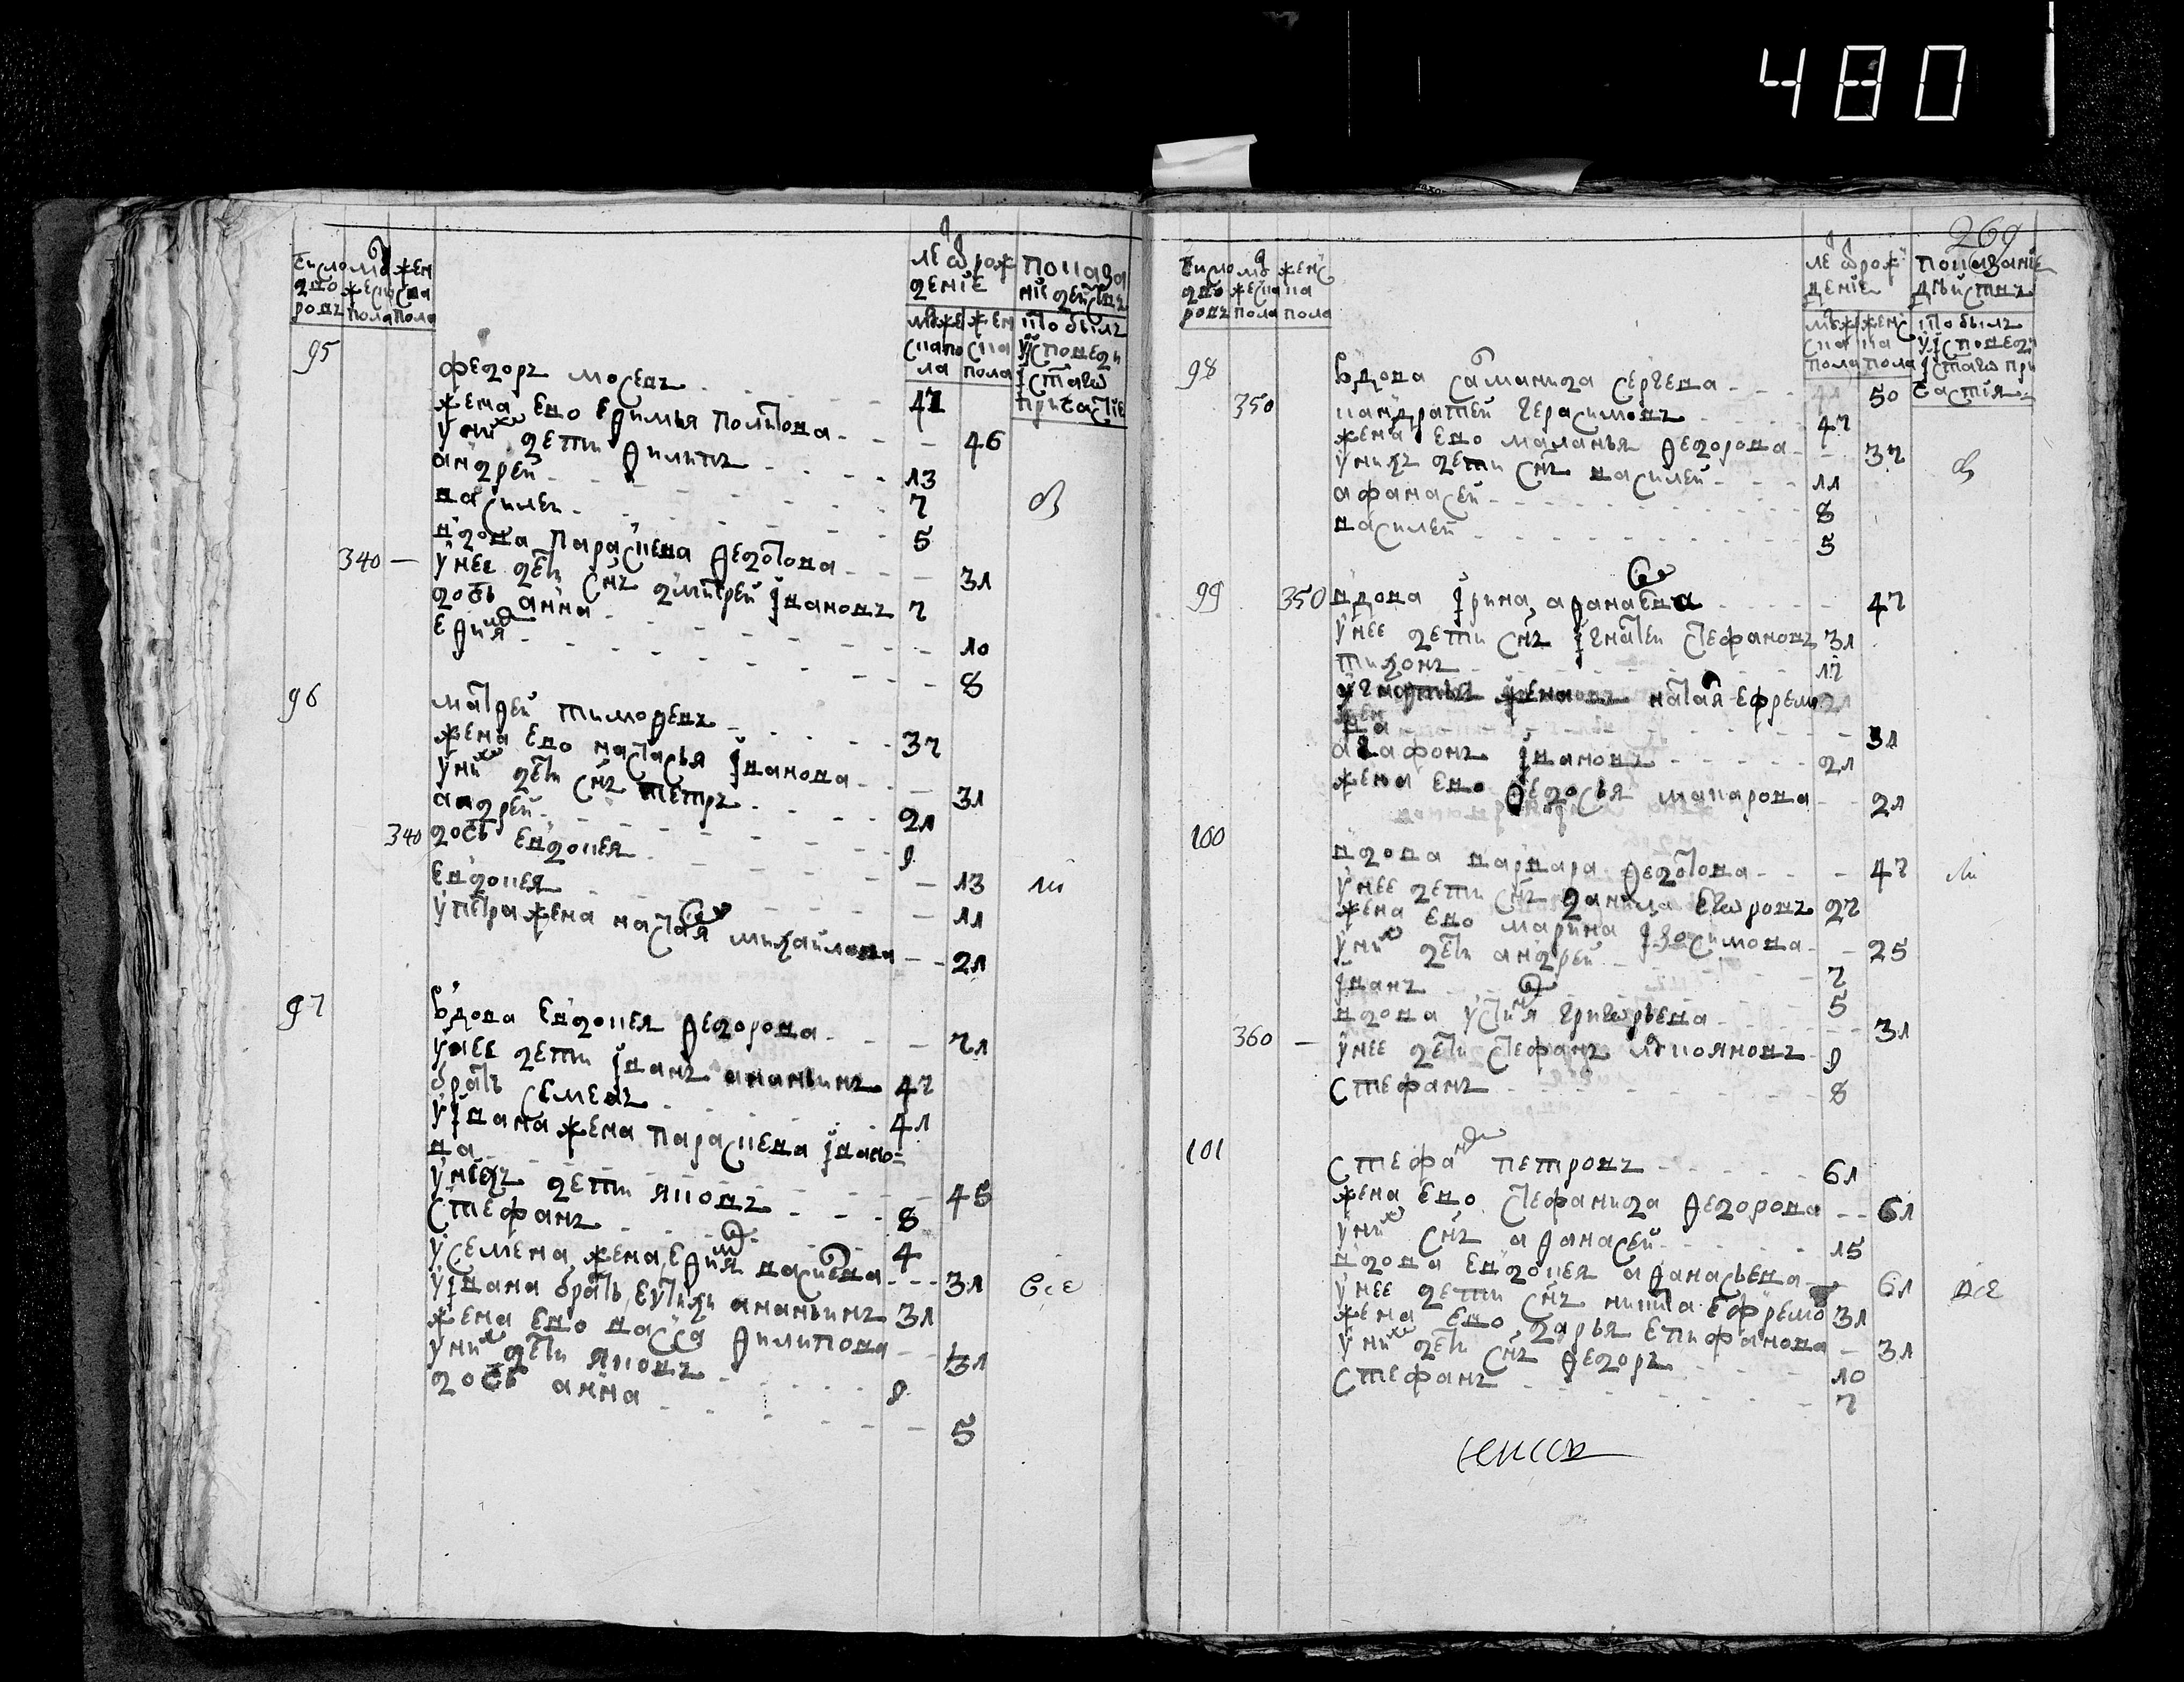 480
число дво ровъ
мужеска пола
женска пола
ле ѿ рож дение
мужеска пола
женска пола
показа ние действъ
кто былъ у исповеди и стаго причастие
95
федоръ мосевъ 41
жена ево ефимья политова 46
у них дети филипъ 13
андрей 7
василей 5
340
вдова параскева федотова 31
у нее дети снъ дмитрей ивановъ 7
дочь анна 10
ефимия 8
96
матфей тимофевъ 37
жена ево настасья иванова 31
у них дети снъ петръ 21
андрей 9
340 дочь евдокея 13
евдокея 11
у петра жена насталя михаилова 21
97
вдова евдокея федорова 71
у нее дети иванъ ананьинъ 47
братъ семенъ 41
у ивана жена параскева ивано=
ва 45
у неехъ дети яковъ 8
стефанъ 4
у семена жена ефимия васиева 31
все
у ивана братъ евтихи ананьинъ 31
жена ево васса филипова 31
у них дети яковъ 9
дочь анна 5
269
число дво ровъ
мужеска пола
женска пола
ле ѿ рож дение
мужеска пола
женска пола
показание действъ
кто былъ у исповеди и стаго причастия
98
вдова саманида сергева 50
350
кандратей герасимовъ 47
жена ево маланья федорова 37
у нихъ дети снъ василей 11
афанасей 8
василей 5
99
350 вдова ирина афанаева 47
у нее дети снъ игнатеи стефановъ 31
тихонъ 17
наталя ефремо
ва 31
агафонъ ивановъ 21
жена ево федосья макарова 21
100
вдова варвара федотова 47
у нее дети снъ данила егѡровъ 27
жена ево марина изосимова 25
у них дети андрей 7
иванъ 5
вдова устиня григѡрьева 31
360
у нее дети стефанъ лукояновъ 9
стефанъ 8
101
стефанъ петровъ 61
жена ево стефанида федорова 61
у них снъ афанасей 15
вдова евдокея афанасьева 61
все
у нее дети снъ никита ефремо 31
жена ево дарья епифанова 31
у них дети снъ федоръ 10
стефанъ 7